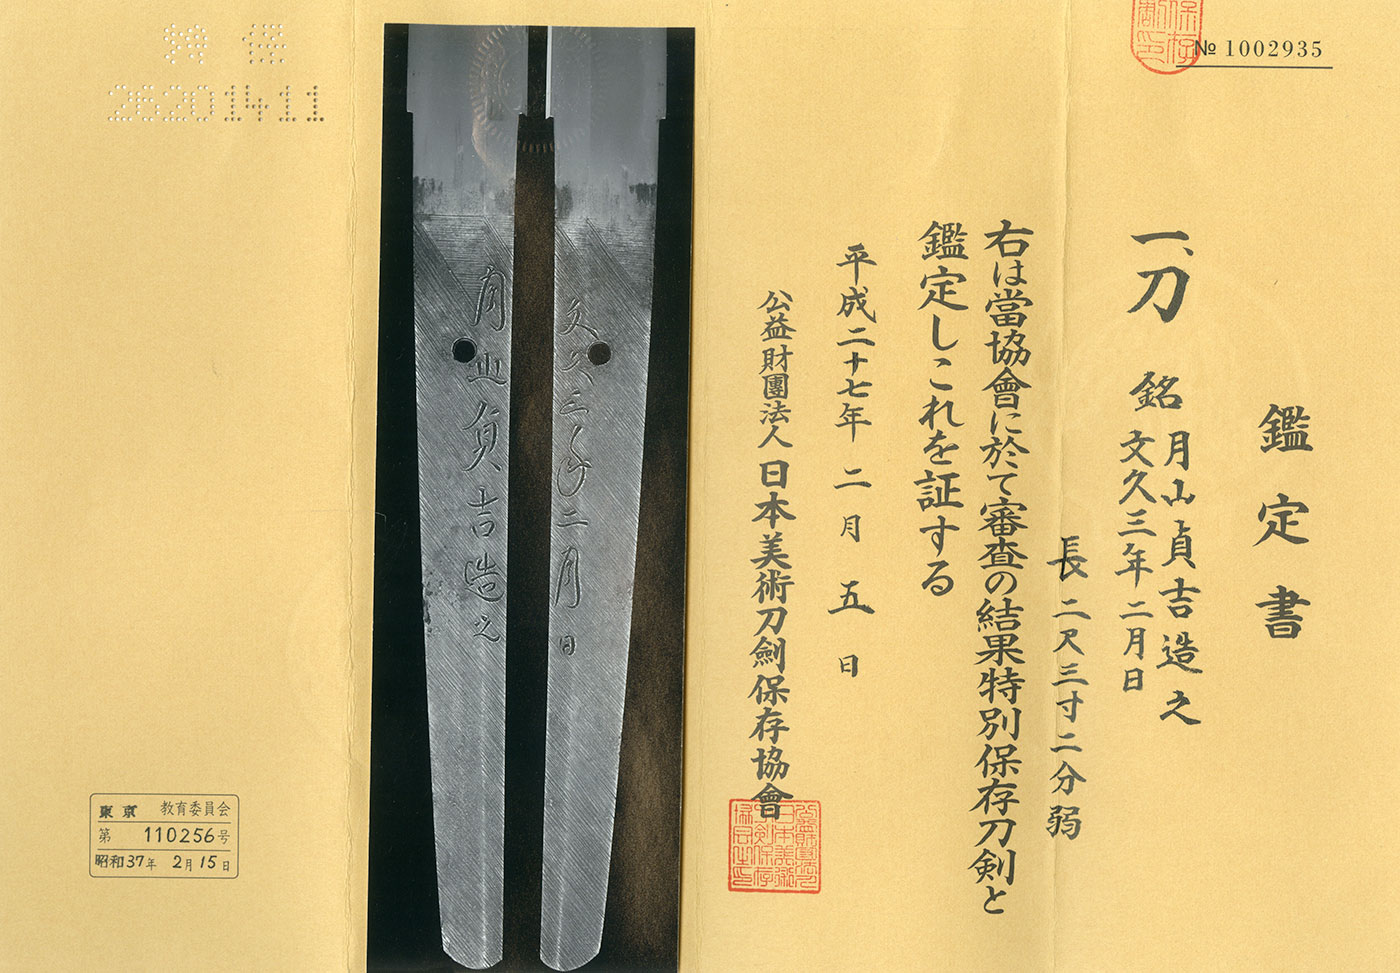 № 1002935
鑑定書
一、刀 銘 月山貞吉造之
文久三年二月日
長二尺三寸二分弱
右は當協會に於て審査の結果特別保存刀剣と
鑑定しこれを証する
平成二十七年二月五日
公益財團法人日本美術刀劍保存協會
文久三年二月日
月山貞吉造之
26201411
東京 教育委員会
第 110256号
昭和37年 2月15日